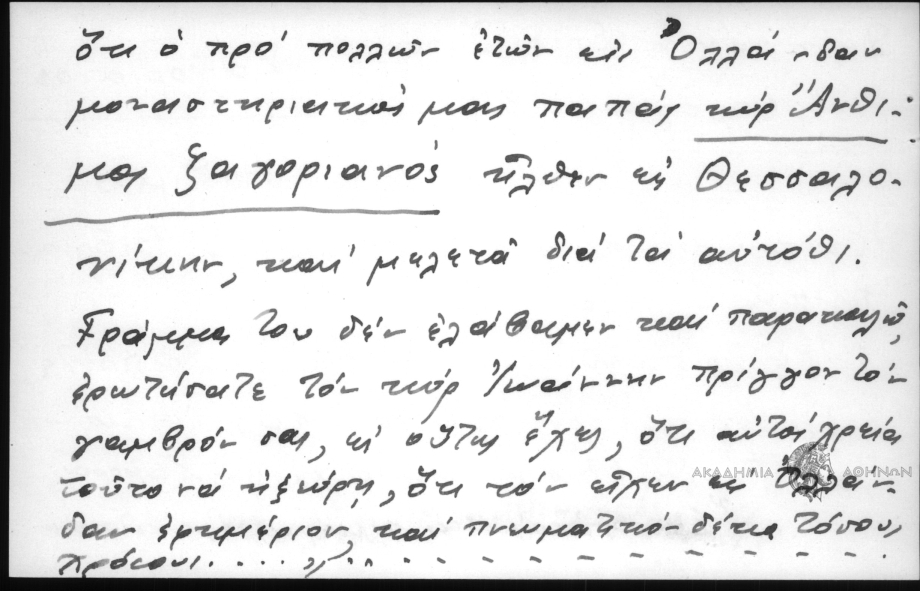 ὅτι ὁ πρό πολλῶν ἐτῶν εἰς Ὀλλάνδαν
μοναστηριακός μας παπάς κύρ Ἄνθι-
μος Ζαγοριανός ἦλθεν εἰς Θεσσαλο-
νίκην, καί μελετᾶ διά τά αὐτόθι.
Γράμμα του δέν ἐλάβαμεν καί παρακαλῶ,
ἐρωτήσατε τόν κύρ Ἰωάννην Πρίγγον τόν
γαμβρόν σας, εἰ οὕτως ἔχει, ὅτι αὐτοί χρεία
τοῦτο νά ἠξεύρῃ, ὅτι τόν εἶχεν εἰς Ὀλλάν-
δαν ἐφημέριον, καί πνευματικόν δέκα τόσους
χρόνους....»..
ΑΚΑΔΗΜΙΑ ΑΘΗΝΩΝ